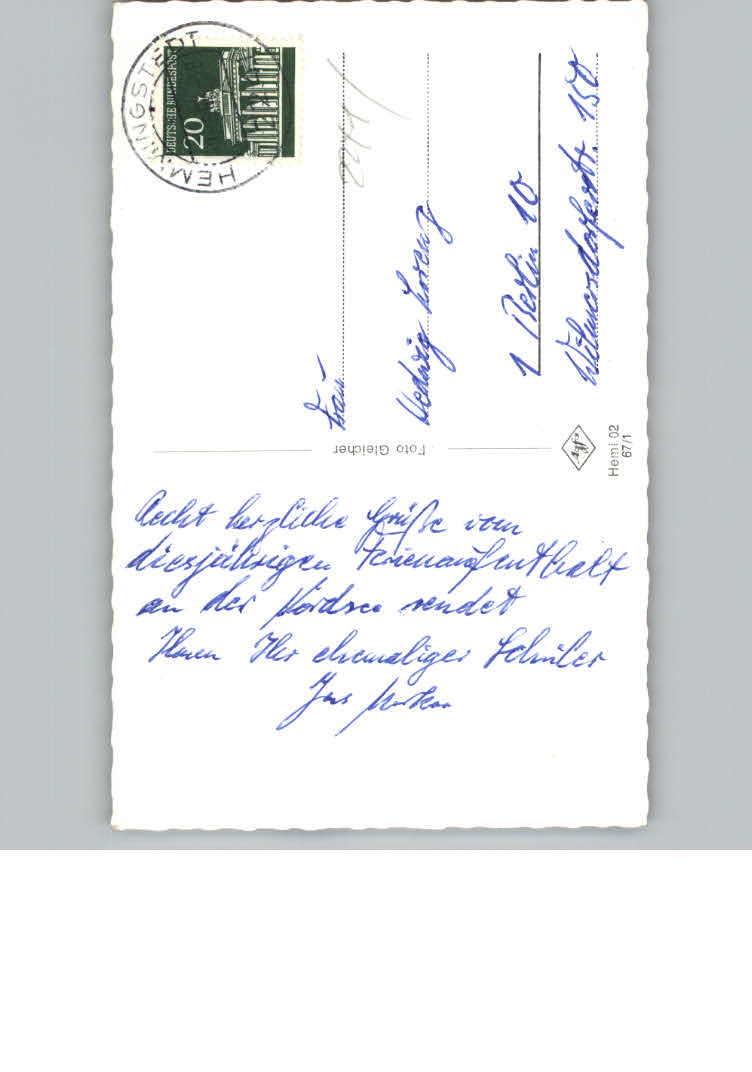 HEMMINGSTEDT
DEUTSCHE BUNDESPOST
20
2241/
Frau
Hedwig Lorenz
1 Berlin 10
Wilmersdorferstr. 150
Foto Gleicher
Agfa
Hemi 02
67/1
Recht herzliche Grüße vom
diesjährigen Ferienaufenthalt
an der Nordsee sendet
Ihnen Ihr ehemaliger Schüler